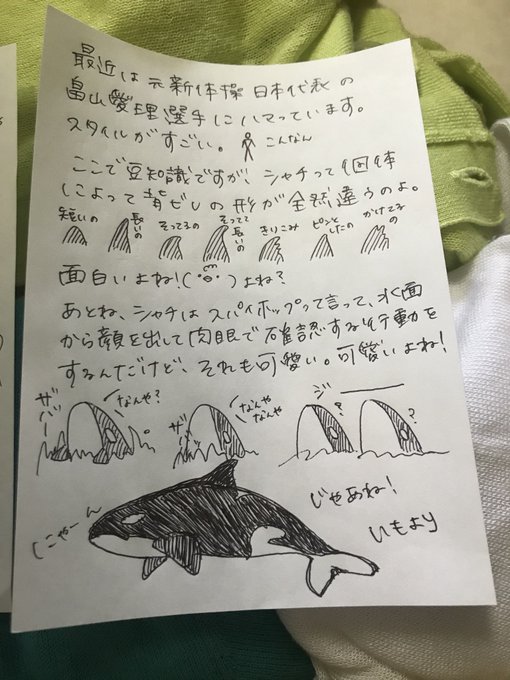 最近は元新体操日本代表の
畠山愛理選手にハマっています。
スタイルがすごい。 こんなん
ここで豆知識ですが、シャチって個体
によって背ビレの形が全然違うのよ。
短いの 長いの そってるの そってて長いの きりこみ ピンとしたの かけてるの
面白いよね!( )よね?
あとね、シャチはスパイホップって言って、水面
から顔を出して肉眼で確認する行動を
するんだけど、それも可愛い。可愛いよね!
ザバー なんや? ザバー なんやなんや ジー ? ?
じゃあね!
しゃーん
いもより